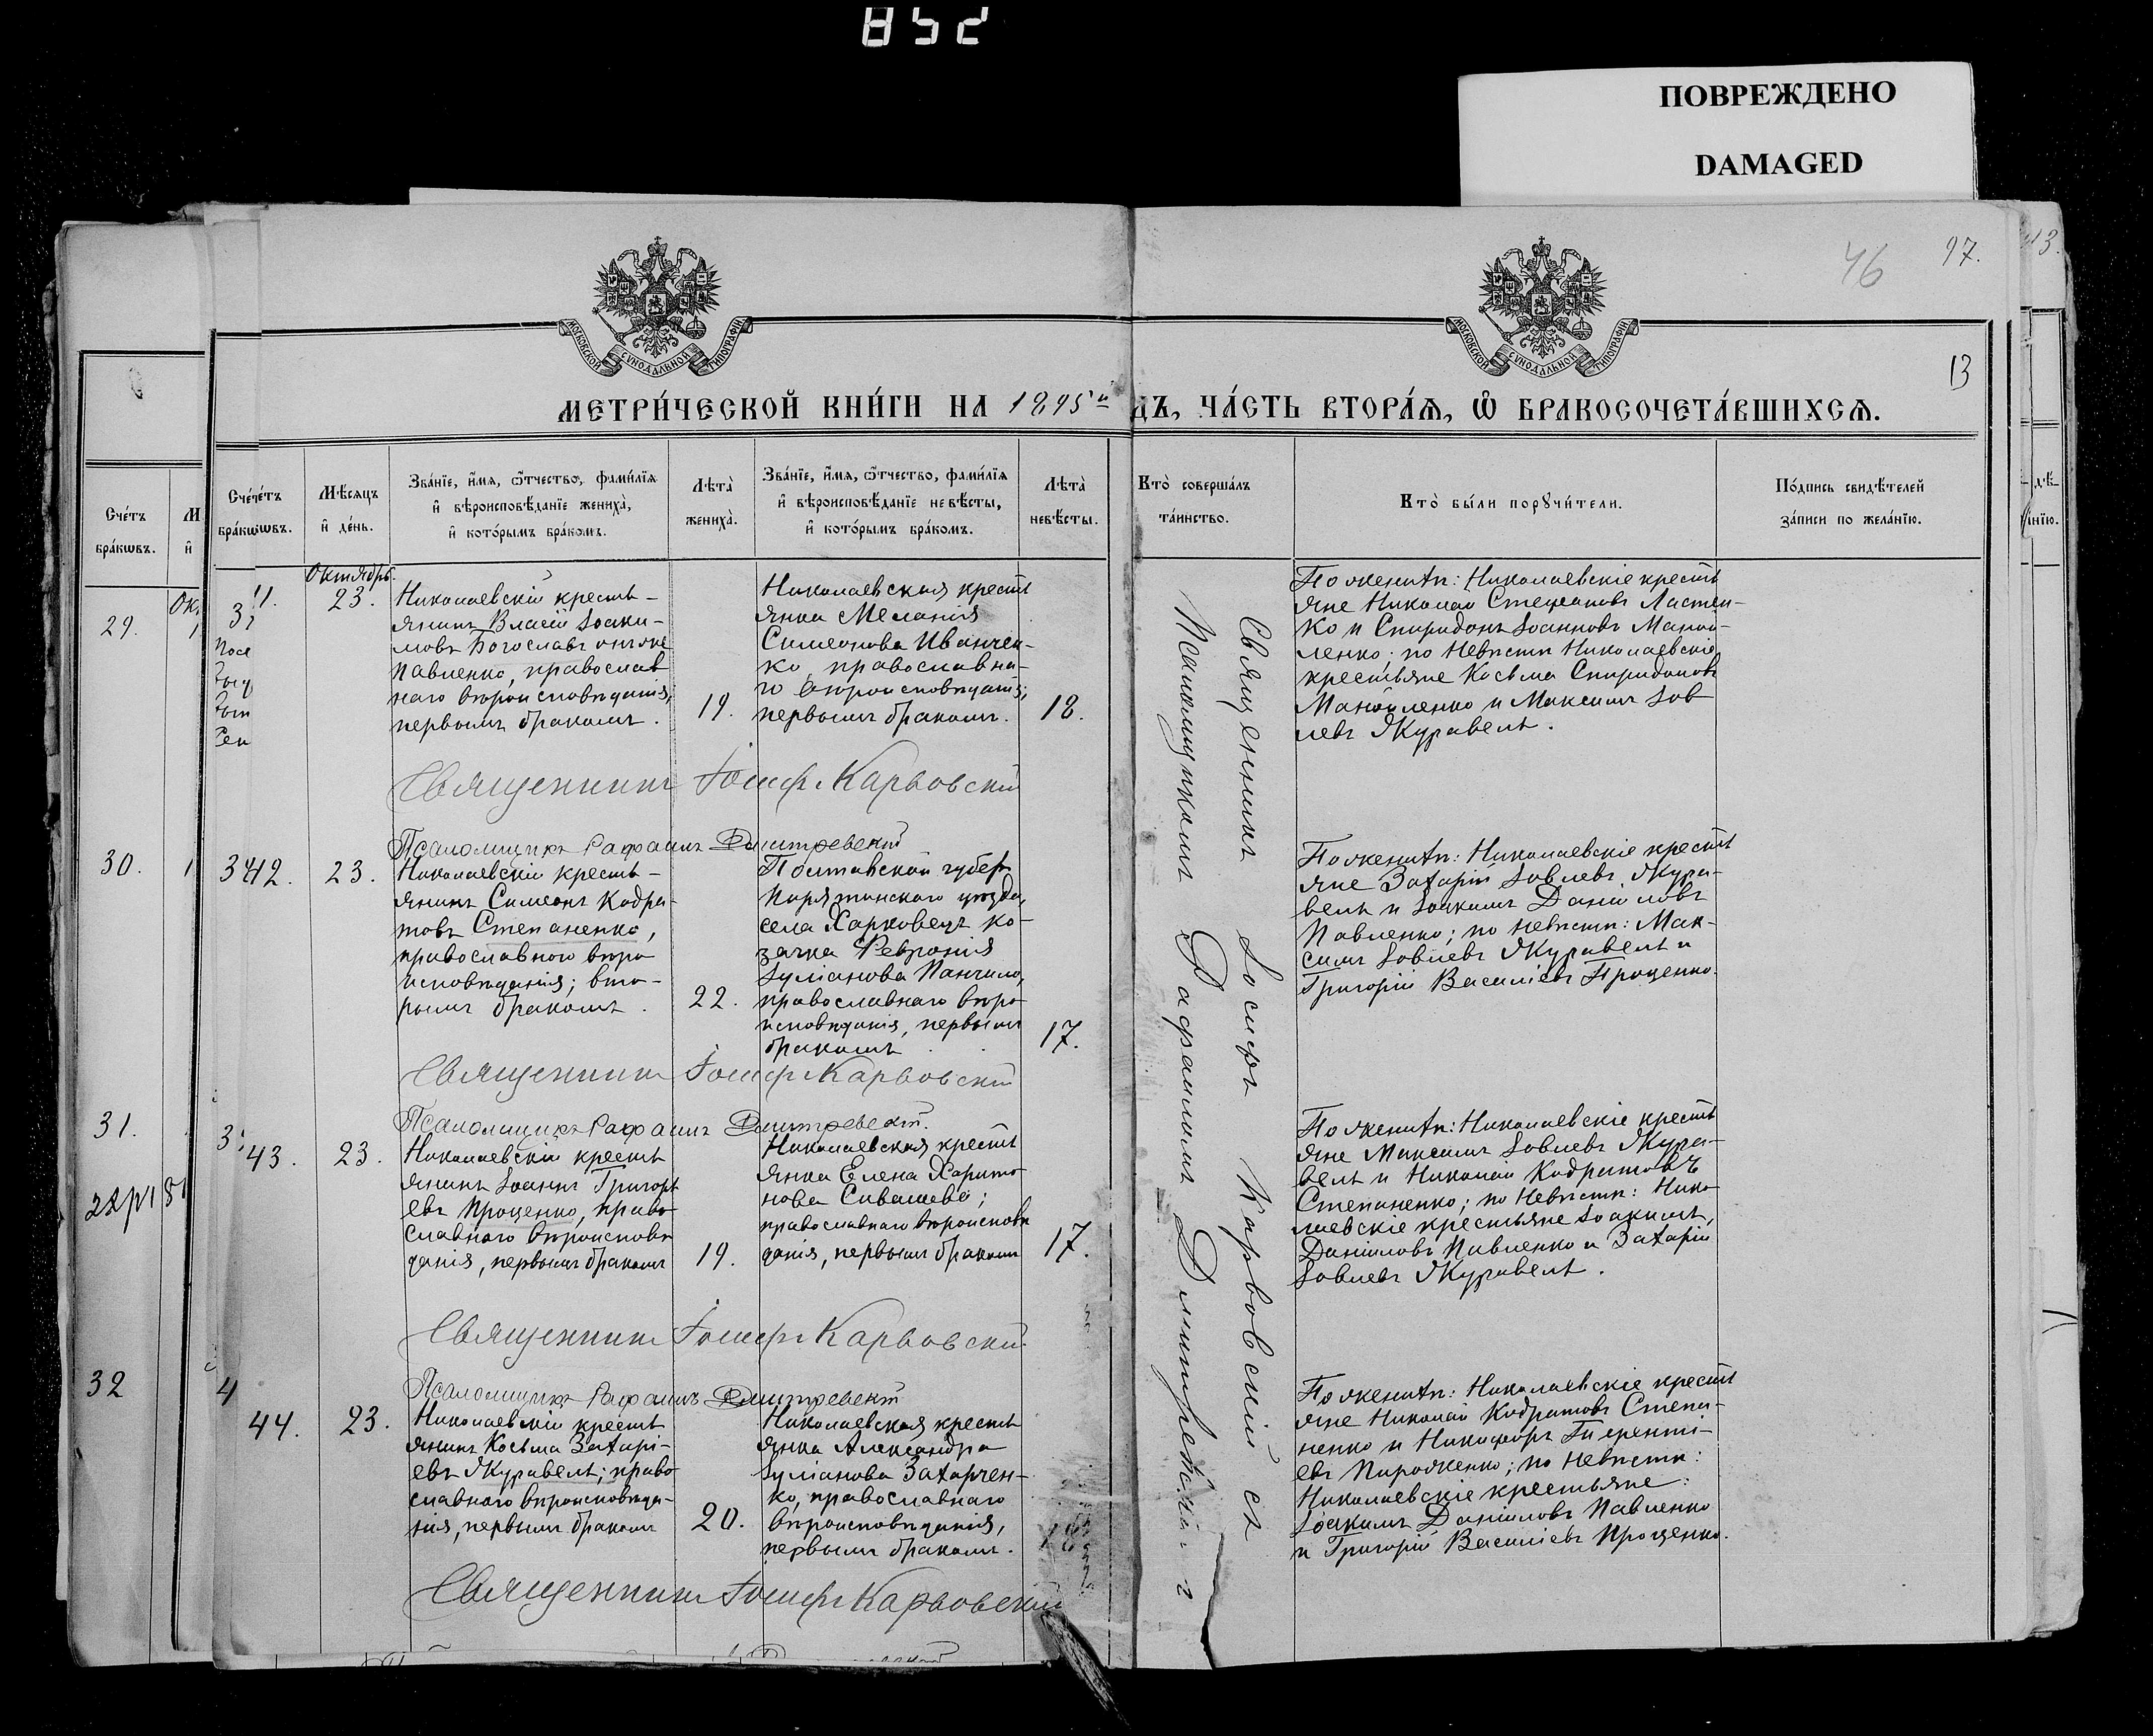 852
ПОВРЕЖДЕНО
DAMAGED
46
97.
13
МОСКОВСКОЙ СѴНОДАЛЬНОЙ ТИПОГРАФІИ
МОСКОВСКОЙ СѴНОДАЛЬНОЙ ТИПОГРАФІИ
МЕТРИ́ЧЕСКОЙ КНИ́ГИ НА 1895й ДЪ, ЧА́СТЬ ВТОРА́Я, Ѿ БРАКОСОЧЕТА́ВШИХСЯ.
Сче́тъ
бра́кѡвъ.
Мѣ́сяцъ
и҆ де́нь.
Зва́нїе, и҆́мя, ѻ҆́тчество, фами́лїя
и҆ вѣроисповѣ́данїе жениха̀,
и҆ кото́рымъ бра́комъ.
Лѣта̀
жениха̀.
Зва́нїе, и҆́мя, ѻ҆́тчество, фами́лїя
и҆ вѣроисповѣ́данїе невѣ́сты,
и҆ кото́рымъ бра́комъ.
Лѣта̀
невѣ́сты.
Кто̀ соверша́лъ
та́инство.
Кто̀ бы́ли порꙋчи́тели.
По́дпись свидѣ́телей
за́писи по жела́нїю.
Сче́тъ
бра́кѡвъ.
29.
30.
31.
32
Октябрь.
23.
Николаевскій кресть-
янинъ Власій Іоаки-
мовъ Богославъ онъ же
Павленко, православ
наго вѣроисповѣданія,
первымъ бракомъ.
19.
Николаевская кресть
янка Меланія
Симеонова Иванчен-
ко, православна-
го вѣроисповѣданія;
первымъ бракомъ.
18.
По женитѣ: Николаевскіе кресть
яне Николай Стефановъ Ластен-
ко и Спиридонъ Іоанновъ Маной-
ленко; по невѣстѣ Николаевскіе
крестьяне Косьма Спиридоновъ
Манойленко и Максимъ Іов
левъ Журавель.
Священникъ Іосифъ Карвовскій
Псаломщикъ Рафаилъ Дмитревскій
42.
23.
Николаевскій кресть-
янинъ Симеонъ Кодра-
товъ Степаненко,
православного вѣро
исповѣданія; вто-
рымъ бракомъ.
22.
Полтавской губер
Пирятинского уѣзда,
села Харковецъ ко-
зачка Февронія
Іуліанова Панчило,
православнаго вѣро
исповѣданія, первымъ
бракомъ
17.
По женитѣ: Николаевскіе кресть
яне Захарій Іовлевъ Жура-
вель и Іоакимъ Даніиловъ
Павленко; по невѣстѣ: Мак-
симъ Іовлевъ Журавель и
Григорій Василіевъ Проценко.
Священникъ Іосифъ Карвовскій
Псаломщикъ Рафаилъ Дмитревскій.
43.
23.
Николаевскій кресть
янинъ Іоаннъ Григорь
евъ Проценко, право
славного вѣроисповѣ
данія, первымъ бракомъ
19.
Николаевская кресть
янка Елена Харито
нова Сивашева;
православнаго вѣроисповѣ
данія, первымъ бракомъ
17.
По женитѣ: Николаевскіе кресть
яне Максимъ Іовлевъ Жура-
вель и Николай Кодратовъ
Степаненко; по невѣстѣ: Нико
лаевскіе крестьяне Іоакимъ,
Даніиловъ Павленко и Захарій
Іовлевъ Журавель.
Священникъ Іосифъ Карвовскій
Псаломщикъ Рафаилъ Дмитревскій
44.
23.
Николаевскій кресть
янинъ Косьма Захарі-
евъ Журавель; право
славного вѣроисповѣда-
нія, первымъ бракомъ
20.
Николаевская кресть
янка Александра
Іуліанова Захарчен-
ко, православнаго
вѣроисповѣданія,
первымъ бракомъ.
По женитѣ: Николаевскіе кресть
яне Николай Кодратовъ Степа-
ненко и Никифоръ Теренті-
евъ Пироженко; по невѣстѣ:
Николаевскіе крестьяне:
Іоакимъ Даніиловъ Павленко
и Григорій Василіевъ Проценко.
Священникъ Іосифъ Карвовскій
Священникъ Іосифъ Карвовскій съ
Псаломщикомъ Рафаиломъ Дмитревскимъ